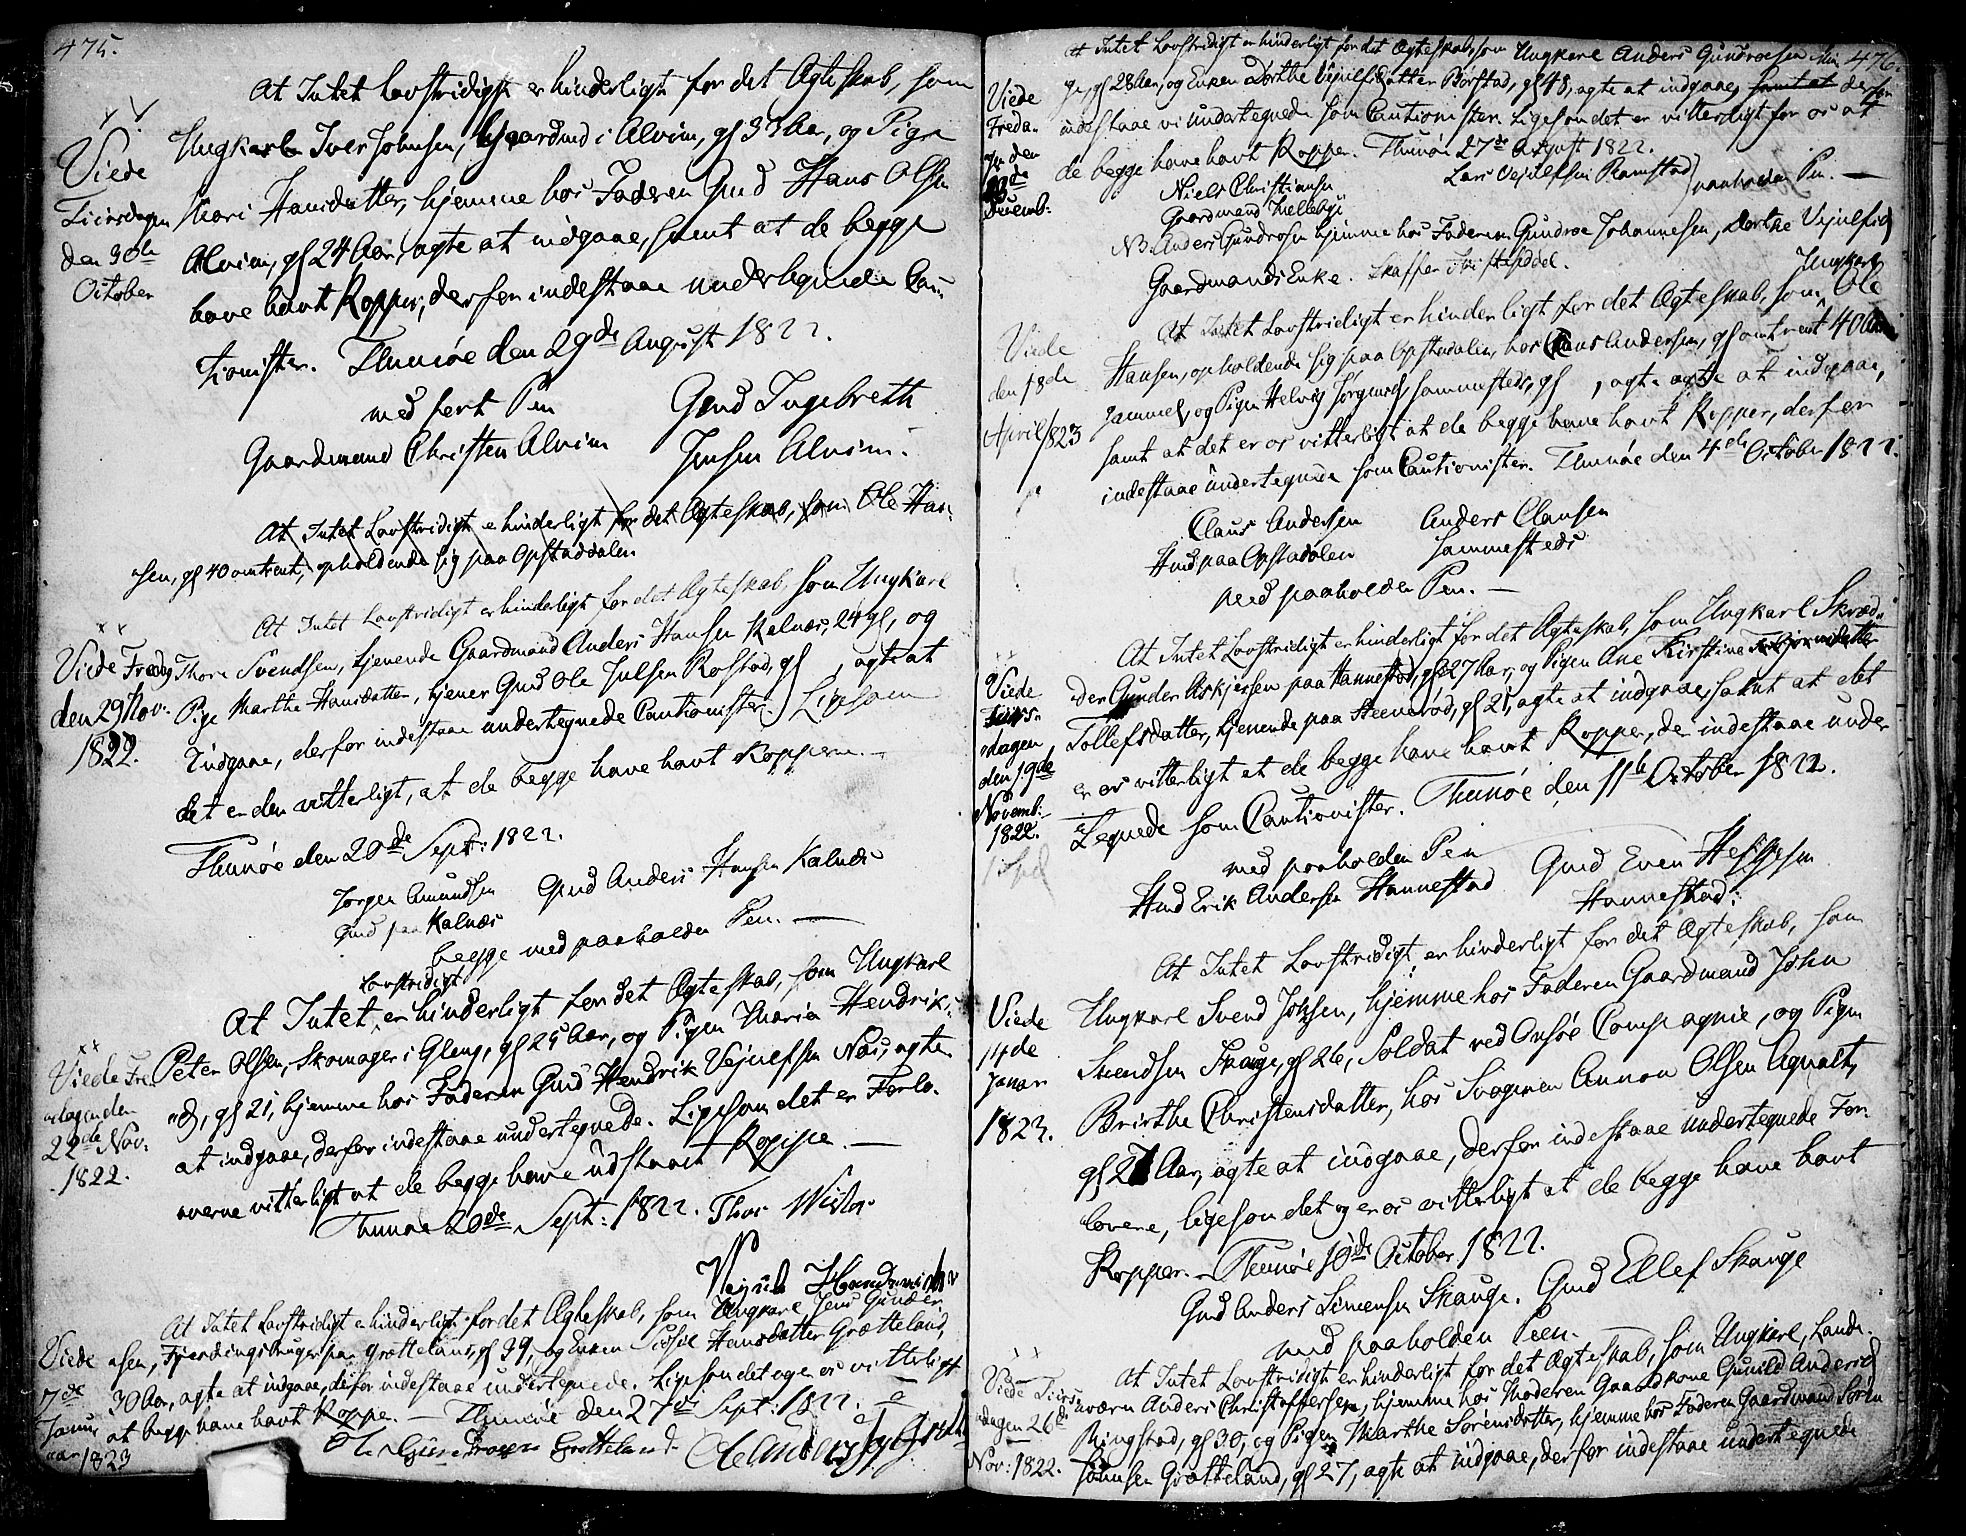 475.
At Intet Lovstridigt er hinderligt for det Ægteskab, som
Ungkarl Iver Johnsen, Gaardmd i Alvim, gl 33 Aar, og Pige
Viede
Tiirsdagen
den 30te
October
Kari Hansdatter, hjemme hos Faderen Gmd Hans Olsen
Alvim, gl 24 Aar, agte at indgaae, samt at de begge
have havt Kopper, derfor indestaae undertegnede Cau-
tionister. Thunøe den 29de August 1822.
med ført Pen
Gaardmand Christen Alvim
Gmd Ingebreth
Jensen Alvim.
At Intet Lovstridigt er hinderligt for det Ægteskab, som Ole Han-
sen, gl 40 omtrent, opholdende sig paa Opstaddalen
At Intet Lovstridigt er hinderligt for det Ægteskab som Ungkarl
Viede Fredag
den 29 Nov.
1822.
Thore Svendsen, tjenende Gaardmand Anders Hansen Kalnæs, 24 gl, og
Pige Marthe Hansdatter, tjener Gmd Ole Julsen Rostad, gl , agte at
indgaae, derfor indestaae undertegnede Cautionister. Ligesom
det er dem vitterligt, at de begge have havt Kopperne. —
Thunøe den 20de Sept: 1822.
Jørgen Amundsen
Gmd paa Kalnæs
Gmd Anders Hansen Kalnæs
begge med paaholden Pen. —
Lovstridigt
At Intet er hinderligt for det Ægteskab, som Ungkarl
Viede Fre-
dagen den
22de Nov.
1822.
Peter Olsen, Skomager i Gleng, gl 25 Aar, og Pigen Maria Hendriks-
d, gl 21, hjemme hos Faderen Gmd Hendrik Vejulfsen Næs, agte
at indgaae, derfor indestaae undertegnede. Ligesom det er Forlo-
verne vitterligt at de begge have udstaaet Koppe. —
Thunøe 20de Sept: 1822. Thor
At Intet Lovstridigt er hinderligt for det Ægteskab, som Ungkarl Jens Gunder-
Viede
7de
Janu-
uar 1823
sen, Fjerdingsbruger paa Grotteland, gl 39, og Enken Sidsel Hansdatter Grotteland,
30 Aar, agte at indgaae, derfor indestaae undertegnede. Ligesom det og er os vitterligt
at begge have havt Koppe. — Thunøe den 27de Sept: 1822. —
Grotteland.
476.
At Intet Lovstridigt er hinderligt for det Ægteskab, som Ungkarl Anders Gundrosen
Viede
Freda-
gen den
Decemb:
gl 28 Aar, og Enken Dorthe Vejulfsdatter Borstad, gl 48, agte at indgaae, samt at derfor
indestaae vi undertegnede som Cautionister. Ligesom det er vitterligt for os at
de begge have havt Kopper. Thunøe 27de August 1822.
Niels Christiansen
Gaardmand
Lars Vejulfsen Ramstad
paaholden Pen. —
NB. Anders Gundrosen hjemme hos Faderen Gundroe Johannesen, Dorthe Vejulfsd
Gaardmands Enke. Skaffer Skifteseddel.
Ungkarl
At Intet Lovstridigt er hinderligt for det Ægteskab, som Ole
Viede
den 18de
April 1823
Hansen, opholdende sig paa Opstadalen, hos Claus Andersen, gl omtrent 40 Aar
gammel, og Pigen Helvig Jørgensd sammesteds, gl , agte agte at indgaae,
samt at det er os vitterligt at de begge have havt Kopper, derfor
indestaae undertegnede som Cautionister. Thunøe den 4de October 1822.
Claus Andersen
Hmd paa Opstadalen
Anders Clausen
sammesteds
med paaholden Pen. —
At Intet Lovstridigt er hinderligt for det Ægteskab, som Ungkarl Skræd-
Viede
Tiirs-
dagen,
den 19de
Novemb:
1822.
1 Spd
der Gunder Askjersen paa Hannestad, gl 27 Aar, og Pigen Ane Kirstine
Tollefsdatter, tjenende paa Steenerød, gl 21, agte at indgaae, samt at det
er os vitterligt at de begge have havt Kopper, der indestaae under
Tegnede som Cautionister. Thunøe den 11te October 1822.
med paaholden Pen
Hmd Erik Andersen Hannestad
Gmd Even
Hannestad.
At Intet Lovstridigt er hinderligt for det Ægteskab, som
Viede
14de
Januar
1823.
Ungkarl Svend Johnsen, hjemme hos Faderen Gaardmand John
Svendsen Skauge, gl 26, Soldat ved Onsøe Compagnie, og Pigen
Birthe Christensdatter, hos Svogeren Annon Olsen Agnalt,
gl 27 Aar, agte at indgaae, derfor indestaae undertegnede For-
lovere, ligesom det og er os vitterligt at de begge have havt
Kopper. — Thunøe 10de October 1822.
Gmd Anders Simensen Skauge. Gmd Ellef Skauge
med paaholden Peen. —
At Intet Lovstridigt er hinderligt for det Ægteskab, som Ungkarl, Lands-
Viede Tiirs-
dagen 26de
Nov: 1822.
værn Anders Christoffersen, hjemme hos Moderen Gaardkone Gunild Andersd
Ringstad, gl 30, og Pigen Marthe Sørensdatter, hjemme hos Faderen Gaardmand Søren
Johnsen Grotteland, gl 27, agte at indgaae, derfor indestaae undertegnede